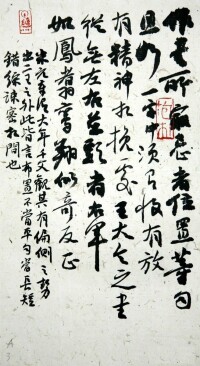 作書所最忌者位置等勻
且如一字中須有收有放
有精神相挽處王大令之書
從無左右並頭者右軍
如鳳翥鸞翔似奇反正
米元章謂大年千文觀其有偏側之勢
出二王之外此皆言布置不當平勻當長短
錯綜疎密相間也